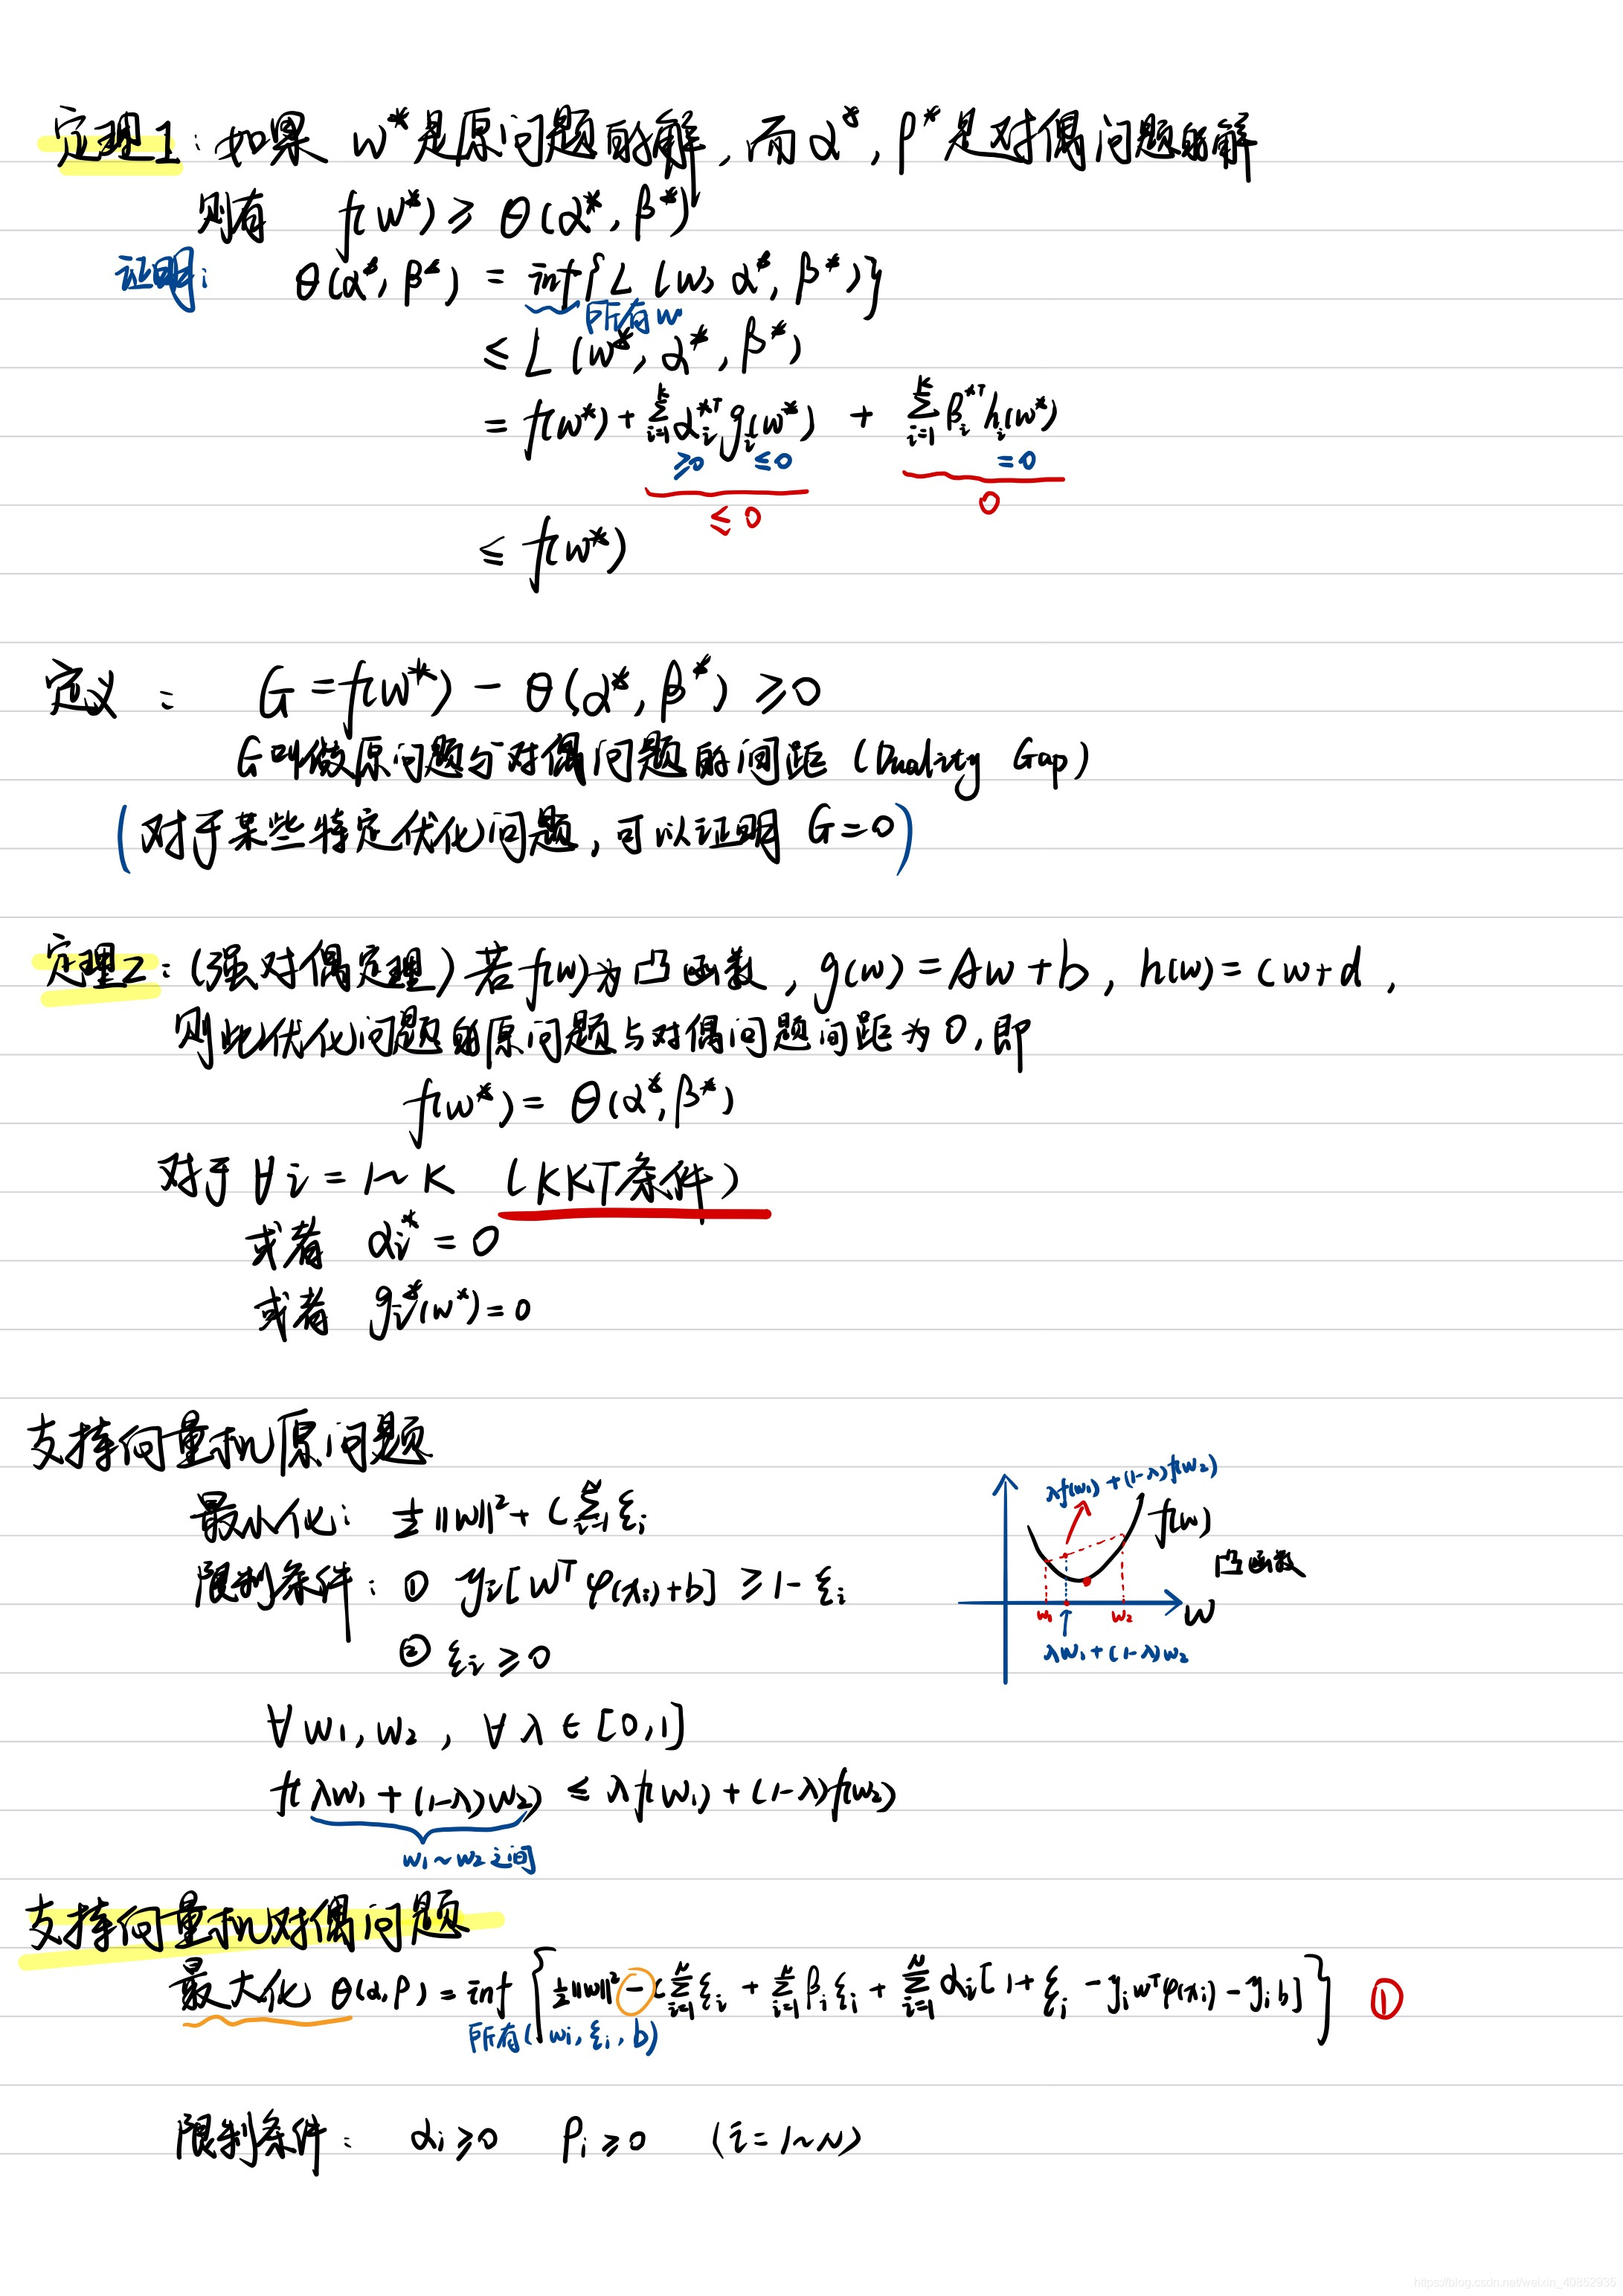 定理1：如果 w*是原问题的解，而α*，β*是对偶问题的解
则有 f(w*) ≥ θ(α*, β*)
证明： θ(α*, β*) = inf{L(w, α*, β*)}
所有w
≤ L(w*, α*, β*)
= f(w*) + Σ_{i=1}^{K} α_i^{*T} g_i(w*) + Σ_{i=1}^{K} β_i^{*T} h_i(w*)
≥0 ≤0 =0
≤ 0 0
≤ f(w*)
定义： G = f(w*) - θ(α*, β*) ≥ 0
G叫做原问题与对偶问题的间距 (Duality Gap)
(对于某些特定优化问题，可以证明 G=0)
定理2：(强对偶定理) 若f(w)为凸函数，g(w) = Aw+b, h(w) = Cw+d,
则此优化问题的原问题与对偶问题间距为0，即
f(w*) = θ(α*, β*)
对于 ∀i = 1~K (KKT条件)
或者 α_i* = 0
或者 g_i*(w*) = 0
支持向量机原问题
最小化： ½||w||² + C Σ_{i=1}^{N} ξ_i
限制条件： ① y_i[w^T φ(x_i)+b] ≥ 1-ξ_i
② ξ_i ≥ 0
λf(w₁)+(1-λ)f(w₂)
f(w)
凸函数
w₁ w₂ w
λw₁+(1-λ)w₂
∀w₁, w₂, ∀λ∈[0,1]
f(λw₁+(1-λ)w₂) ≤ λf(w₁)+(1-λ)f(w₂)
w₁~w₂之间
支持向量机对偶问题
最大化 θ(α,β) = inf {½||w||² - C Σ_{i=1}^{N} ξ_i + Σ_{i=1}^{N} β_i ξ_i + Σ_{i=1}^{N} α_i[1+ξ_i - y_i w^T φ(x_i) - y_i b]} ①
所有(w_i, ξ_i, b)
限制条件： α_i ≥ 0 β_i ≥ 0 (i=1~N)
https://blog.csdn.net/weixin_40852935